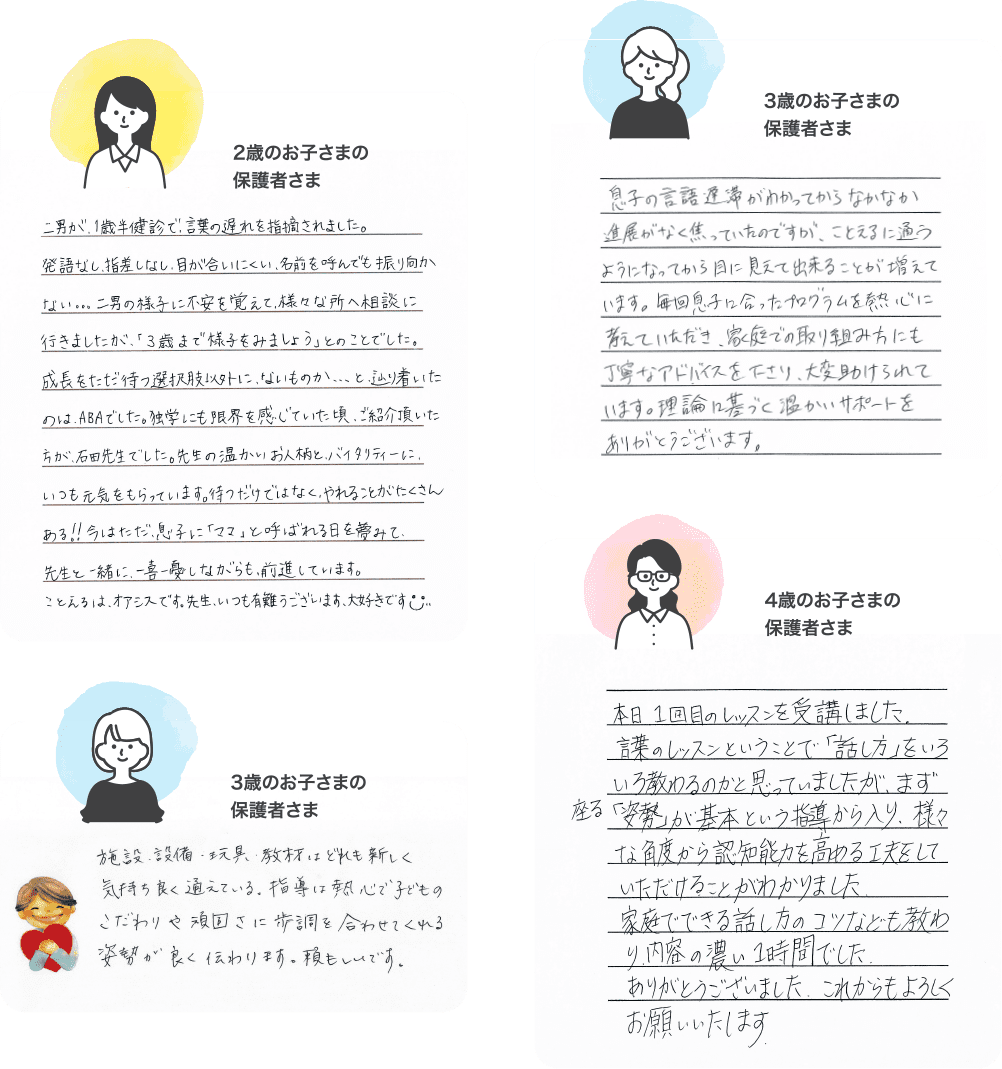 2歳のお子さまの
保護者さま
二男が、1歳半健診で、言葉の遅れを指摘されました。
発語なし、指差しなし、目が合いにくい、名前を呼んでも振り向か
ない。。。二男の様子に不安を覚えて、様々な所へ相談に
行きましたが、「3歳まで様子をみましょう」とのことでした。
成長をただ待つ選択肢以外に、ないものか、、、と、辿り着いた
のは、ABAでした。独学にも限界を感じていた頃、ご紹介頂いた
方が、石田先生でした。先生の温かいお人柄と、バイタリティーに、
いつも元気をもらっています。待つだけではなく、やれることがたくさん
ある!!今はただ、息子に「ママ」と呼ばれる日を夢みて、
先生と一緒に、一喜一憂しながらも、前進しています。
ことえるは、オアシスです。先生、いつも有難うございます、大好きです
3歳のお子さまの
保護者さま
施設、設備・玩具、教材はどれも新しく
気持ち良く通えている。指導は熱心で子どもの
こだわりや頑固さに歩調を合わせてくれる
姿勢が良く伝わります。頼もしいです。
3歳のお子さまの
保護者さま
息子の言語遅滞がわかってからなかなか
進展がなく焦っていたのですが、ことえるに通う
ようになってから目に見えて出来ることが増えて
います。毎回息子に合ったプログラムを熱心に
考えていただき、家庭での取り組み方にも
丁寧なアドバイスを下さり、大変助けられて
います。理論に基づく温かいサポートを
ありがとうございます。
4歳のお子さまの
保護者さま
本日1回目のレッスンを受講しました。
言葉のレッスンということで「話し方」をいろ
いろ教わるのかと思っていましたが、まず
座る「姿勢」が基本という指導から入り、様々
な角度から認知能力を高める工夫をして
いただけることがわかりました。
家庭でできる話し方のコツなども教わ
り、内容の濃い1時間でした。
ありがとうございました。これからもよろしく
お願いいたします。